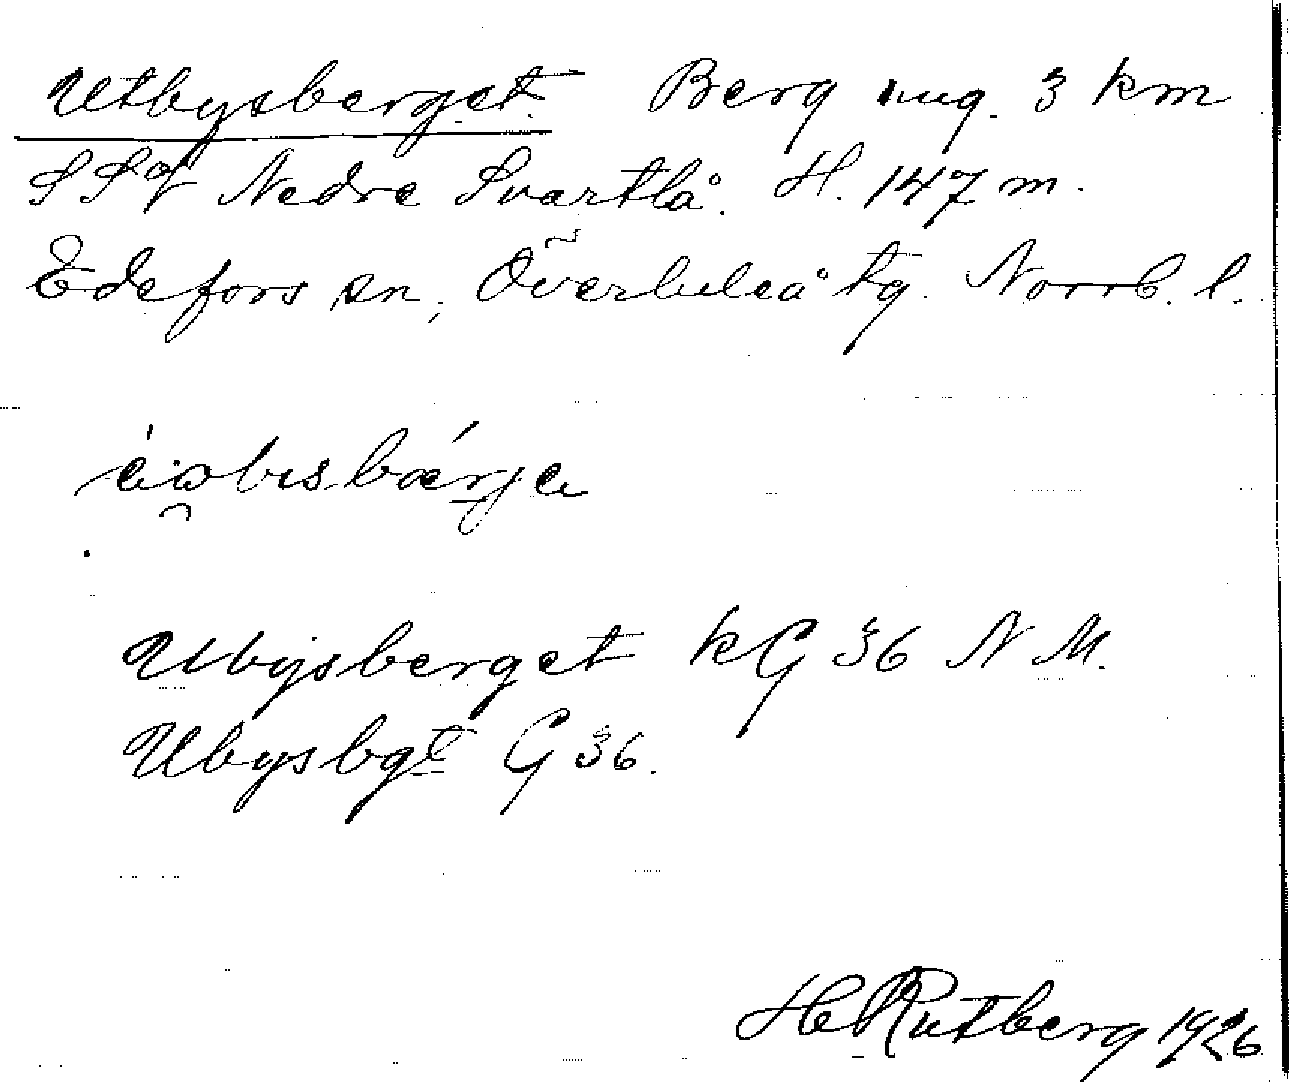 Utbysberget. Berg ung. 3 km
SSV Nedre Svartlå. H. 147 m.
Edefors sn, Överluleå tg. Norrb. l.
Ubysberget kG 36 N M.
Ubysbgt G 36.
H Rutberg 1926